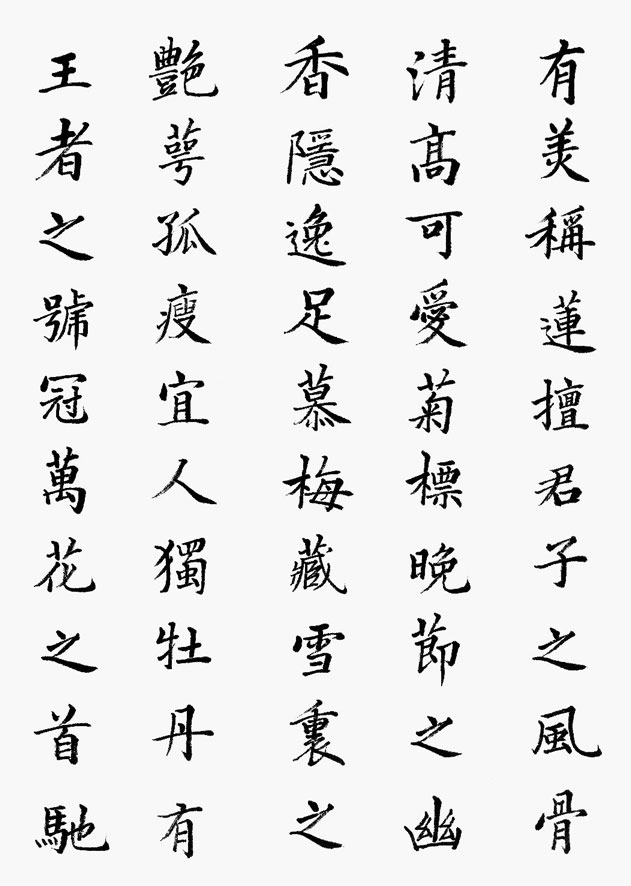 有美稱蓮擅君子之風骨
清高可愛菊標晚節之幽
香隱逸足慕梅藏雪裏之
艷萼孤瘦宜人獨牡丹有
王者之號冠萬花之首馳